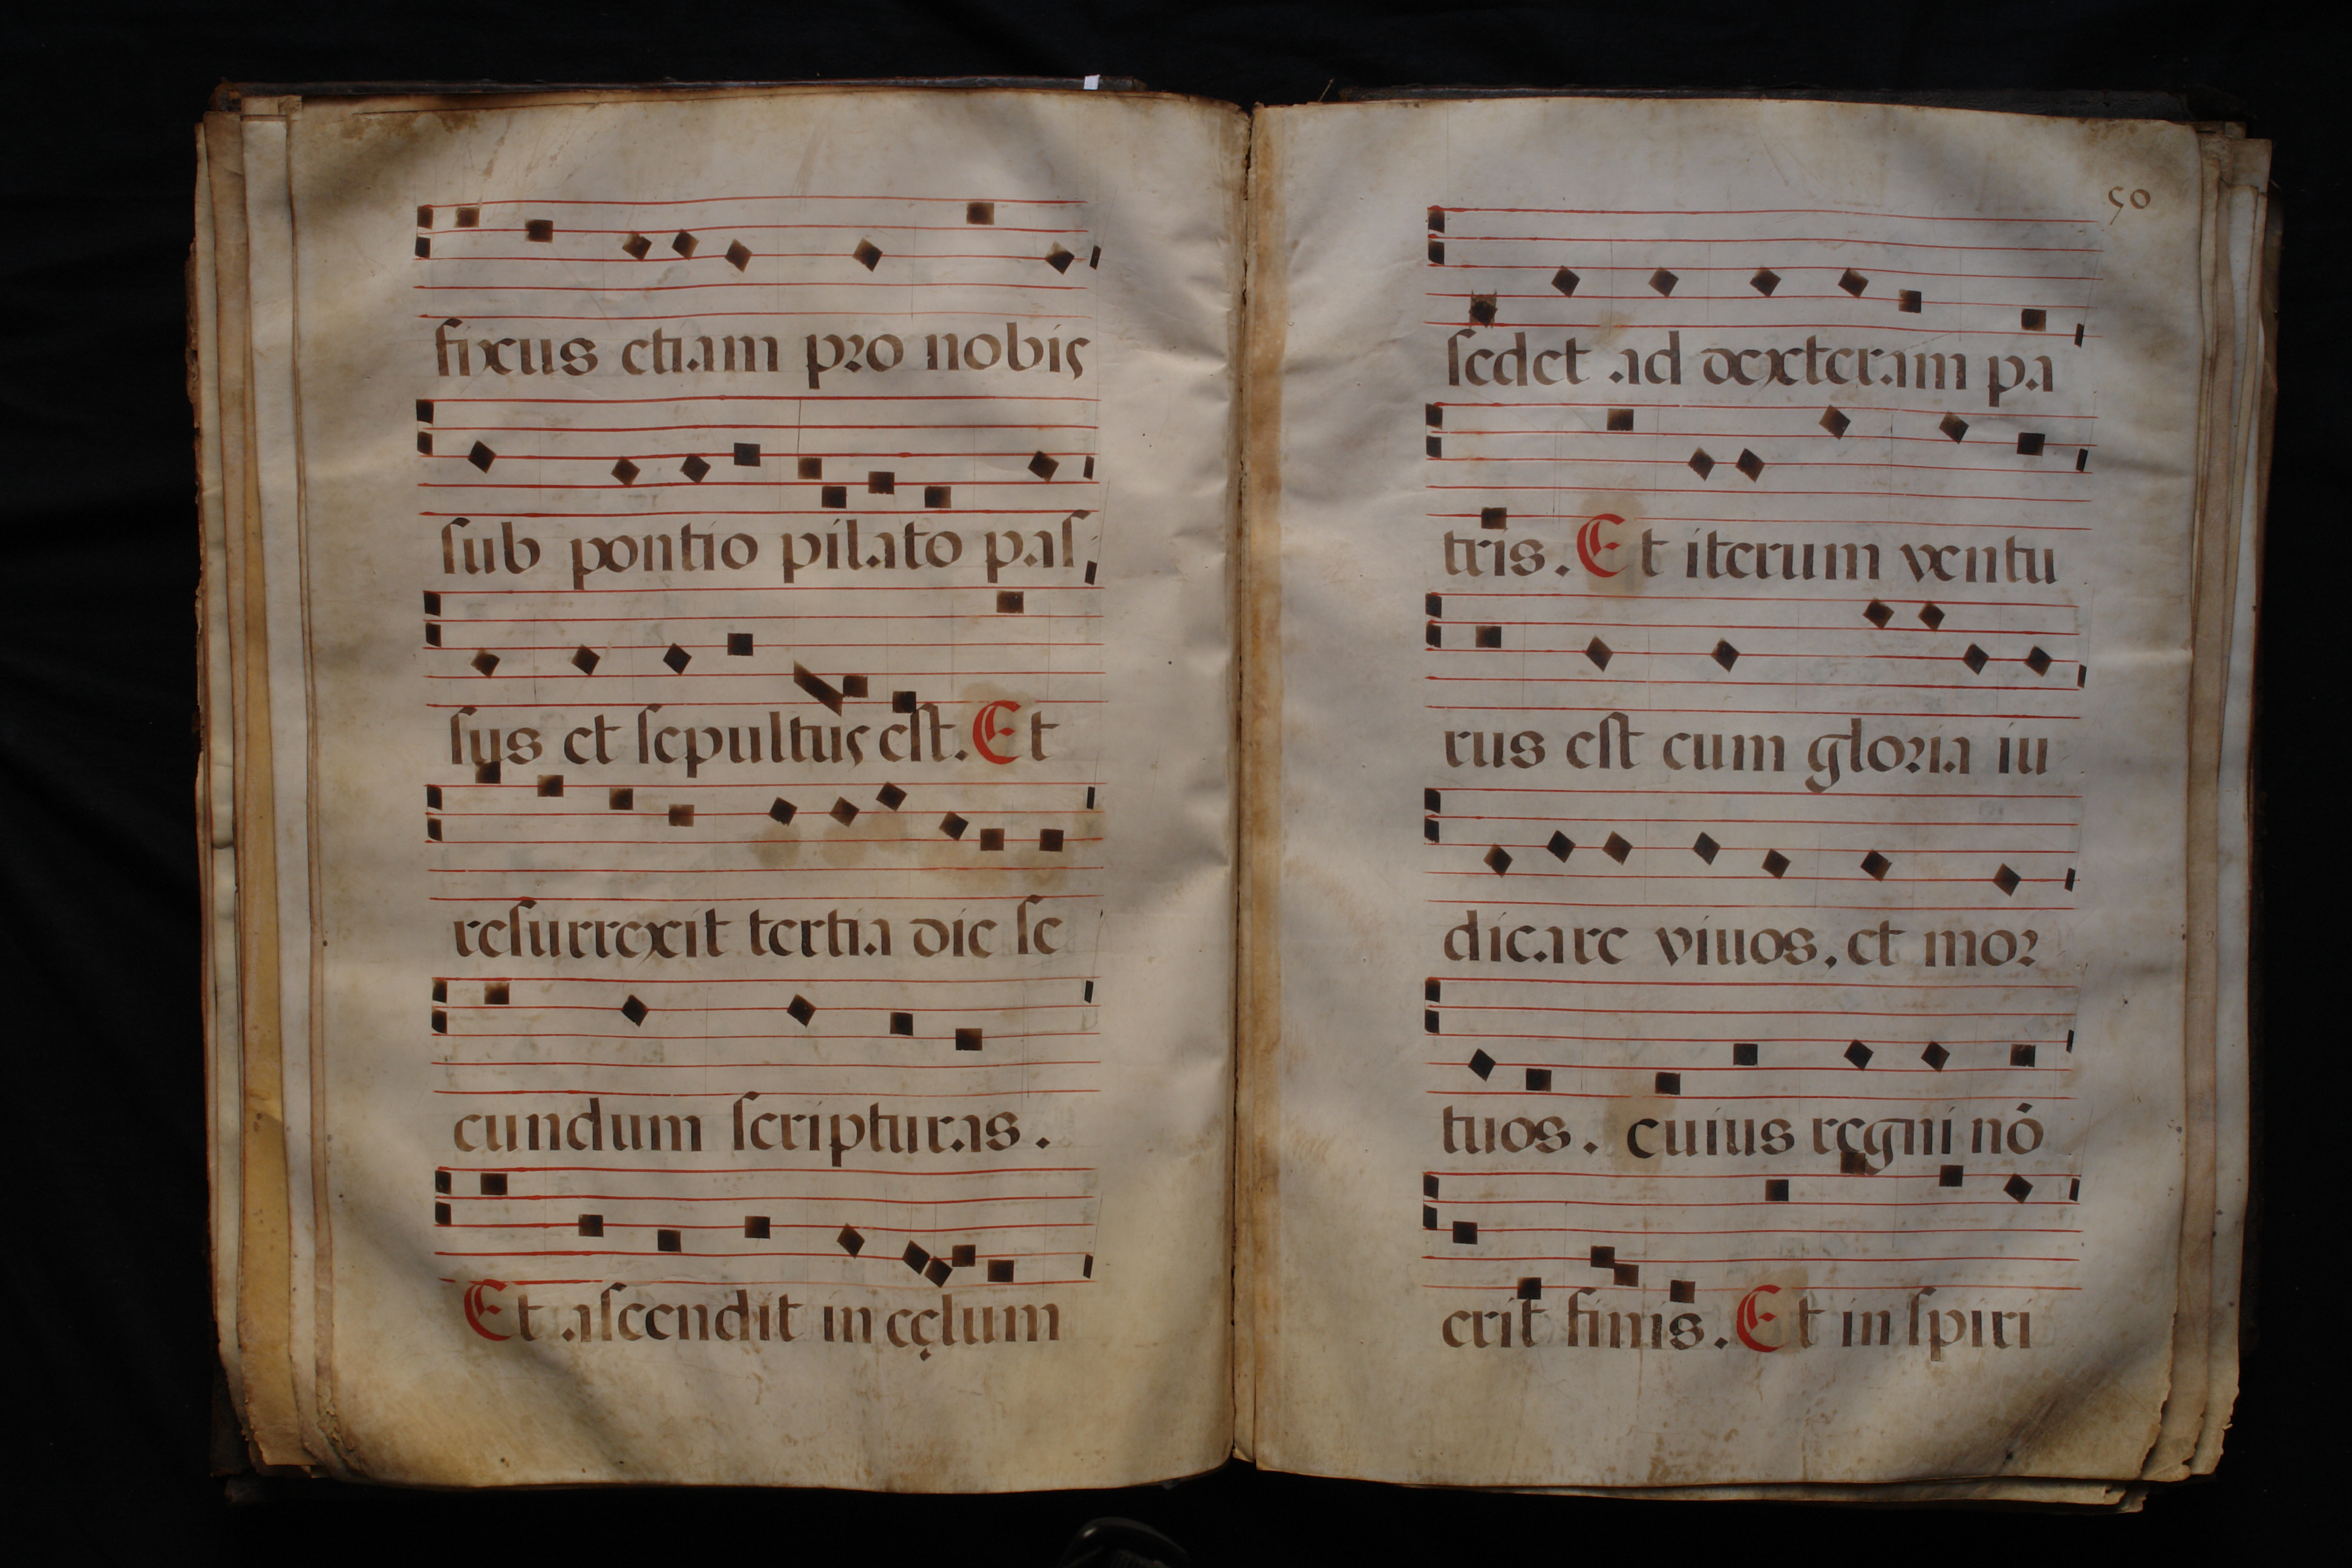 fixus etiam pro nobis
sub pontio pilato pas
sus et sepultus est. Et
resurrexit tertia die se
cundum scripturas.
Et ascendit in cęlum
50
sedet ad dexteram pa
tris. Et iterum ventu
rus est cum gloria iu
dicare viuos, et mor
tuos. cuius regni nō
erit finis. Et in spiri